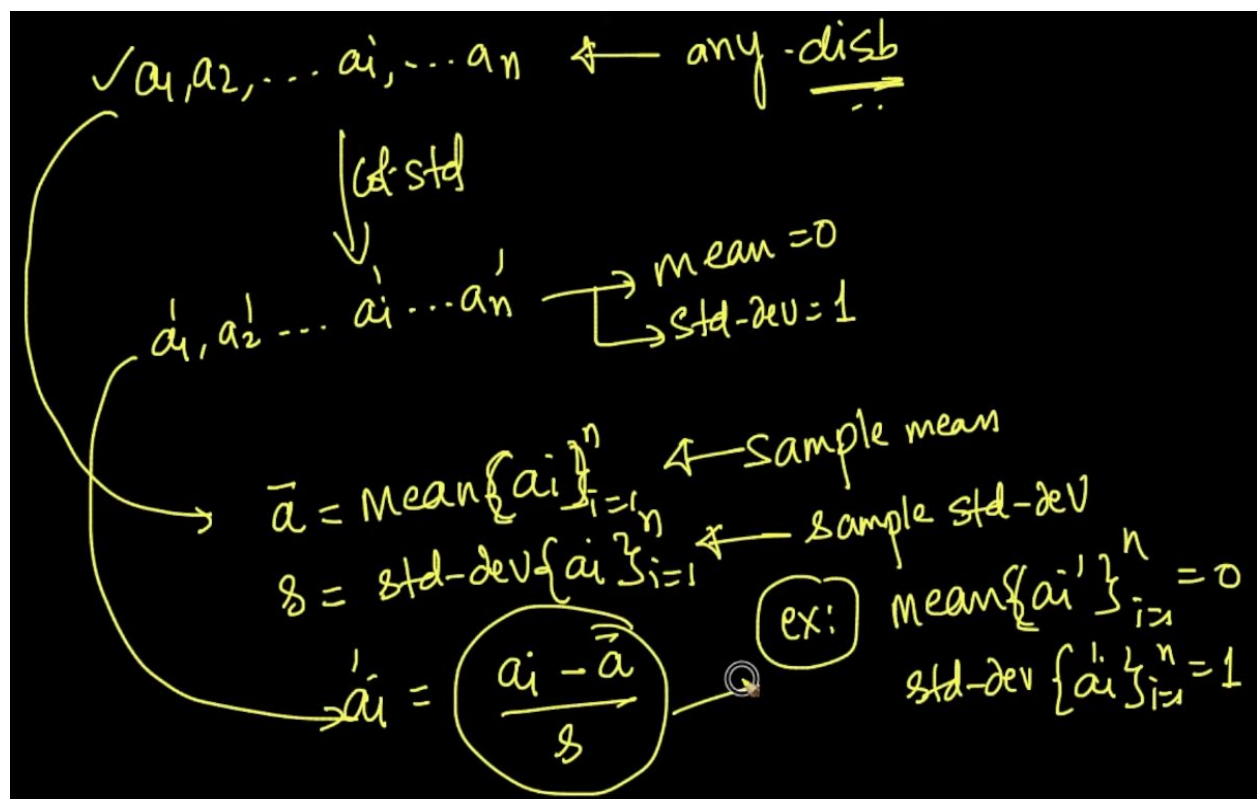 ✓ a1, a2, ... ai, ... an ← any-disb
col-std
a1', a2' ... ai' ... an' → mean = 0
→ std-dev = 1
ā = mean{ai}ⁿi=1 ← sample mean
s = std-dev{ai}ⁿi=1 ← sample std-dev
ai' = (ai - ā) / s
ex: mean{ai'}ⁿi=1 = 0
std-dev{ai'}ⁿi=1 = 1